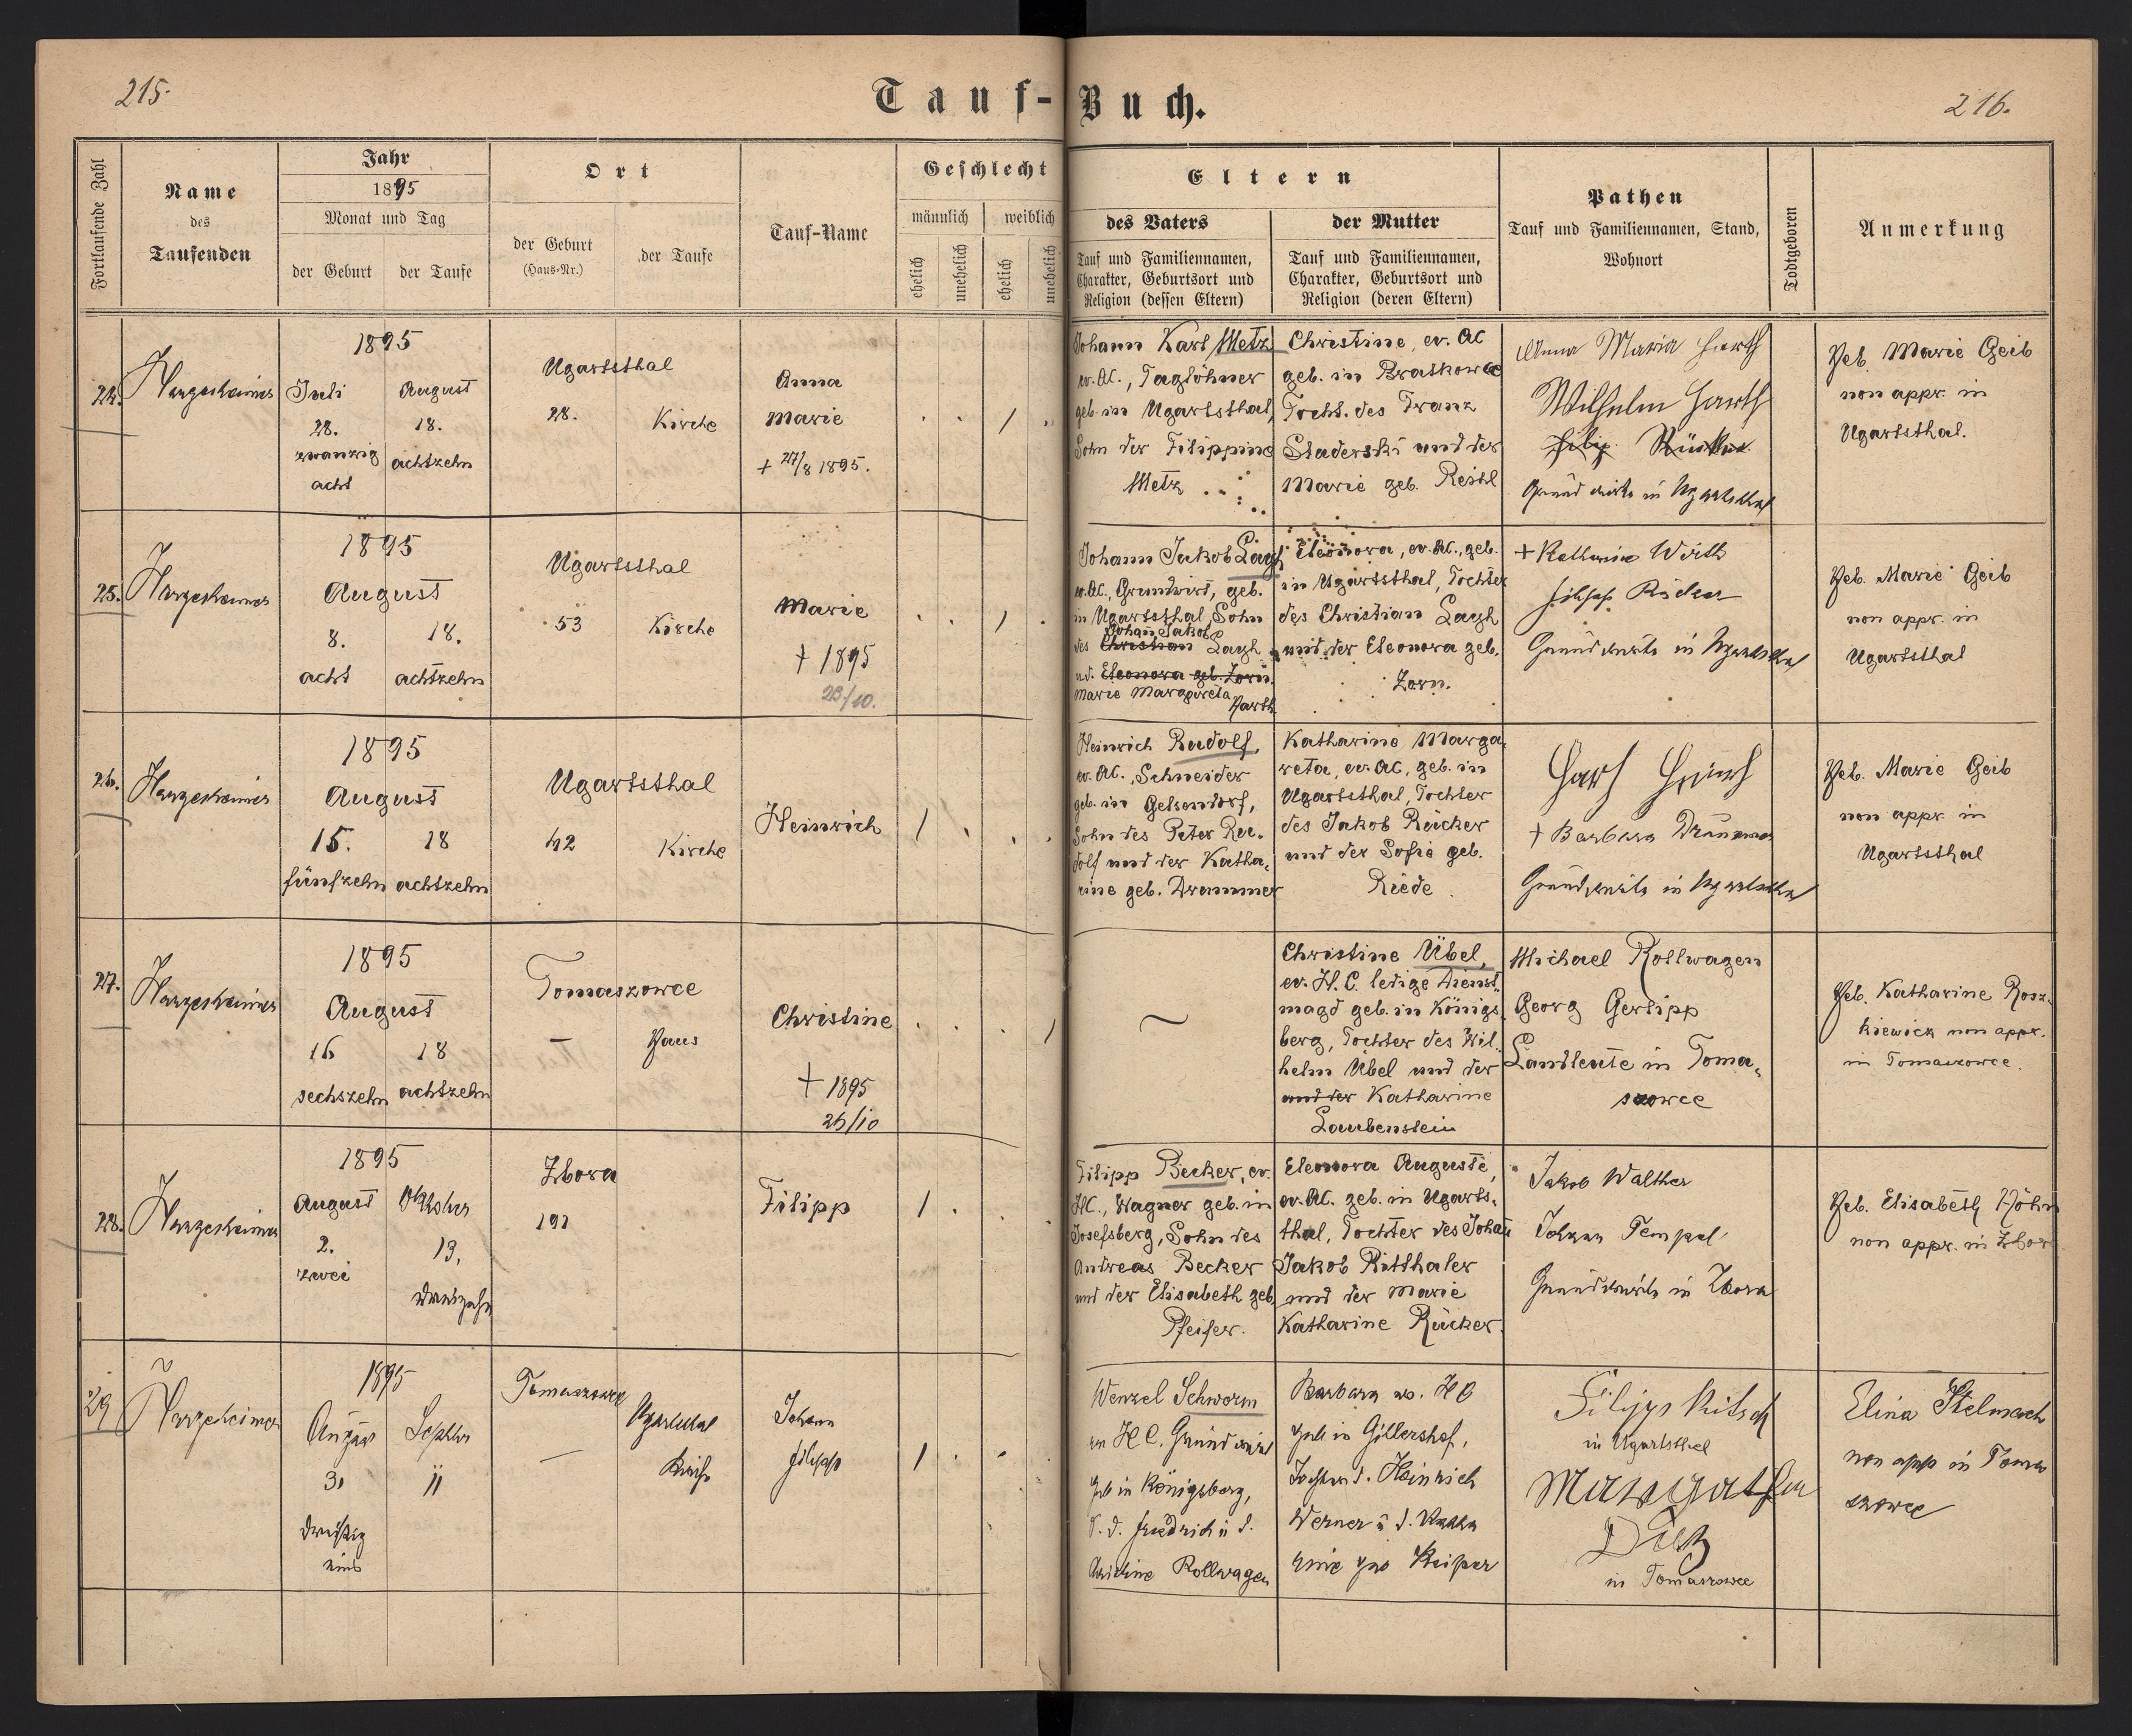 215.
Tauf-Buch.
216.
Fortlaufende Zahl
Name
des
Taufenden
Jahr
1895
Monat und Tag
der Geburt
der Taufe
Ort
der Geburt
(Haus-Nr.)
der Taufe
Tauf-Name
Geschlecht
männlich
weiblich
ehelich
unehelich
ehelich
unehelich
Eltern
des Vaters
Tauf und Familiennamen,
Charakter, Geburtsort und
Religion (dessen Eltern)
der Mutter
Tauf und Familiennamen,
Charakter, Geburtsort und
Religion (deren Eltern)
Pathen
Tauf und Familiennamen, Stand,
Wohnort
Todtgeboren
Anmerkung
24.
Hargesheimer
1895
Juli
28.
zwanzig
acht
August
18.
achtzehn
Ugartsthal
28.
Kirche
Anna
Marie
+ 27/8 1895.
Johann Karl Metz
ev. AC., Taglöhner
geb. in Ugartsthal,
Sohn der Filippine
Metz
Christine, ev. AC
geb. in Bratkowce
Tocht. des Franz
Staderski und der
Marie geb. Reichl
Anna Maria Harth
Wilhelm Harth
Filip Rücker
Grundwirte in Ugartsthal
Heb. Marie Geib
non appr. in
Ugartsthal.
25.
Hargesheimer
1895
August
8.
acht
18.
achtzehn
Ugartsthal
53
Kirche
Marie
+ 1895
23/10.
Johann Jakob Lagh
ev. AC., Grundwirt, geb.
in Ugartsthal, Sohn
Johan Jakob
des Christian Lagh
u. d. Eleonora geb. Zorn.
Marie Margareta
Harth
Eleonora, ev. AC., geb.
in Ugartsthal, Tochter
des Christian Lagh
und der Eleonora geb.
Zorn.
+ Katharina Wirth
Filipp Rücker
Grundwirte in Ugartsthal
Heb. Marie Geib
non appr. in
Ugartsthal
26.
Hargesheimer
1895
August
15.
fünfzehn
18
achtzehn
Ugartsthal
42
Kirche
Heinrich
Heinrich Rudolf,
ev. AC., Schneider
geb. in Gelsendorf,
Sohn des Peter Ru-
dolf und der Katha-
rine geb. Drammer
Katharine Marga-
reta, ev. AC, geb. in
Ugartsthal, Tochter
des Jakob Rücker
und der Sofie geb.
Riede
+ Barbara
Grundwirte in Ugartsthal
Heb. Marie Geib
non appr. in
Ugartsthal
27.
Hargesheimer
1895
August
16
sechszehn
18
achtzehn
Tomaszowce
—
Haus
Christine
+ 1895
26/10
Christine Übel,
ev. H. C. ledige Dienst-
magd geb. in Königs-
berg, Tochter des Wil-
helm Übel und der
und der Katharine
Laubenstein
Michael Rollwagen
Georg Gerlipp
Landleute in Toma-
szowce
Heb. Katharine Rosz-
kiewicz non appr.
in Tomaszowce.
28.
Hargesheimer
1895
August
2.
zwei
Oktober
13.
dreizehn
Zbora
191
Filipp
Filipp Becker, ev.
HC., Wagner geb. in
Josefsberg, Sohn des
Andreas Becker
und der Elisabeth geb.
Pfeifer.
Eleonora Auguste,
ev. AC. geb. in Ugarts-
thal, Tochter des Johan
Jakob Ritthaler
und der Marie
Katharine Rücker.
Jakob Walther
Johann Tempel
Grundwirte in Zbora
Heb. Elisabeth Höhn
non appr. in Zbor
29
Hargesheimer
1895
August
31
dreißig
eins
Septbr
11
Tomaszowce
—
Ugartsthal
Kirche
Johann
Filipp
Wenzel Schworm
ev HC. Grundwirt
geb in Königsberg,
S. d. Friedrich u d.
Christine Rollwagen
Barbara ev. HC
geb in Gillershof,
Tochter d. Heinrich
Werner u d. Katha
rine geb Keiper
Filipp Kitsch
in Ugartsthal
Margaretha
Dietz
in Tomaszowce
Elina Stelmach
non appr in Toma
szowce